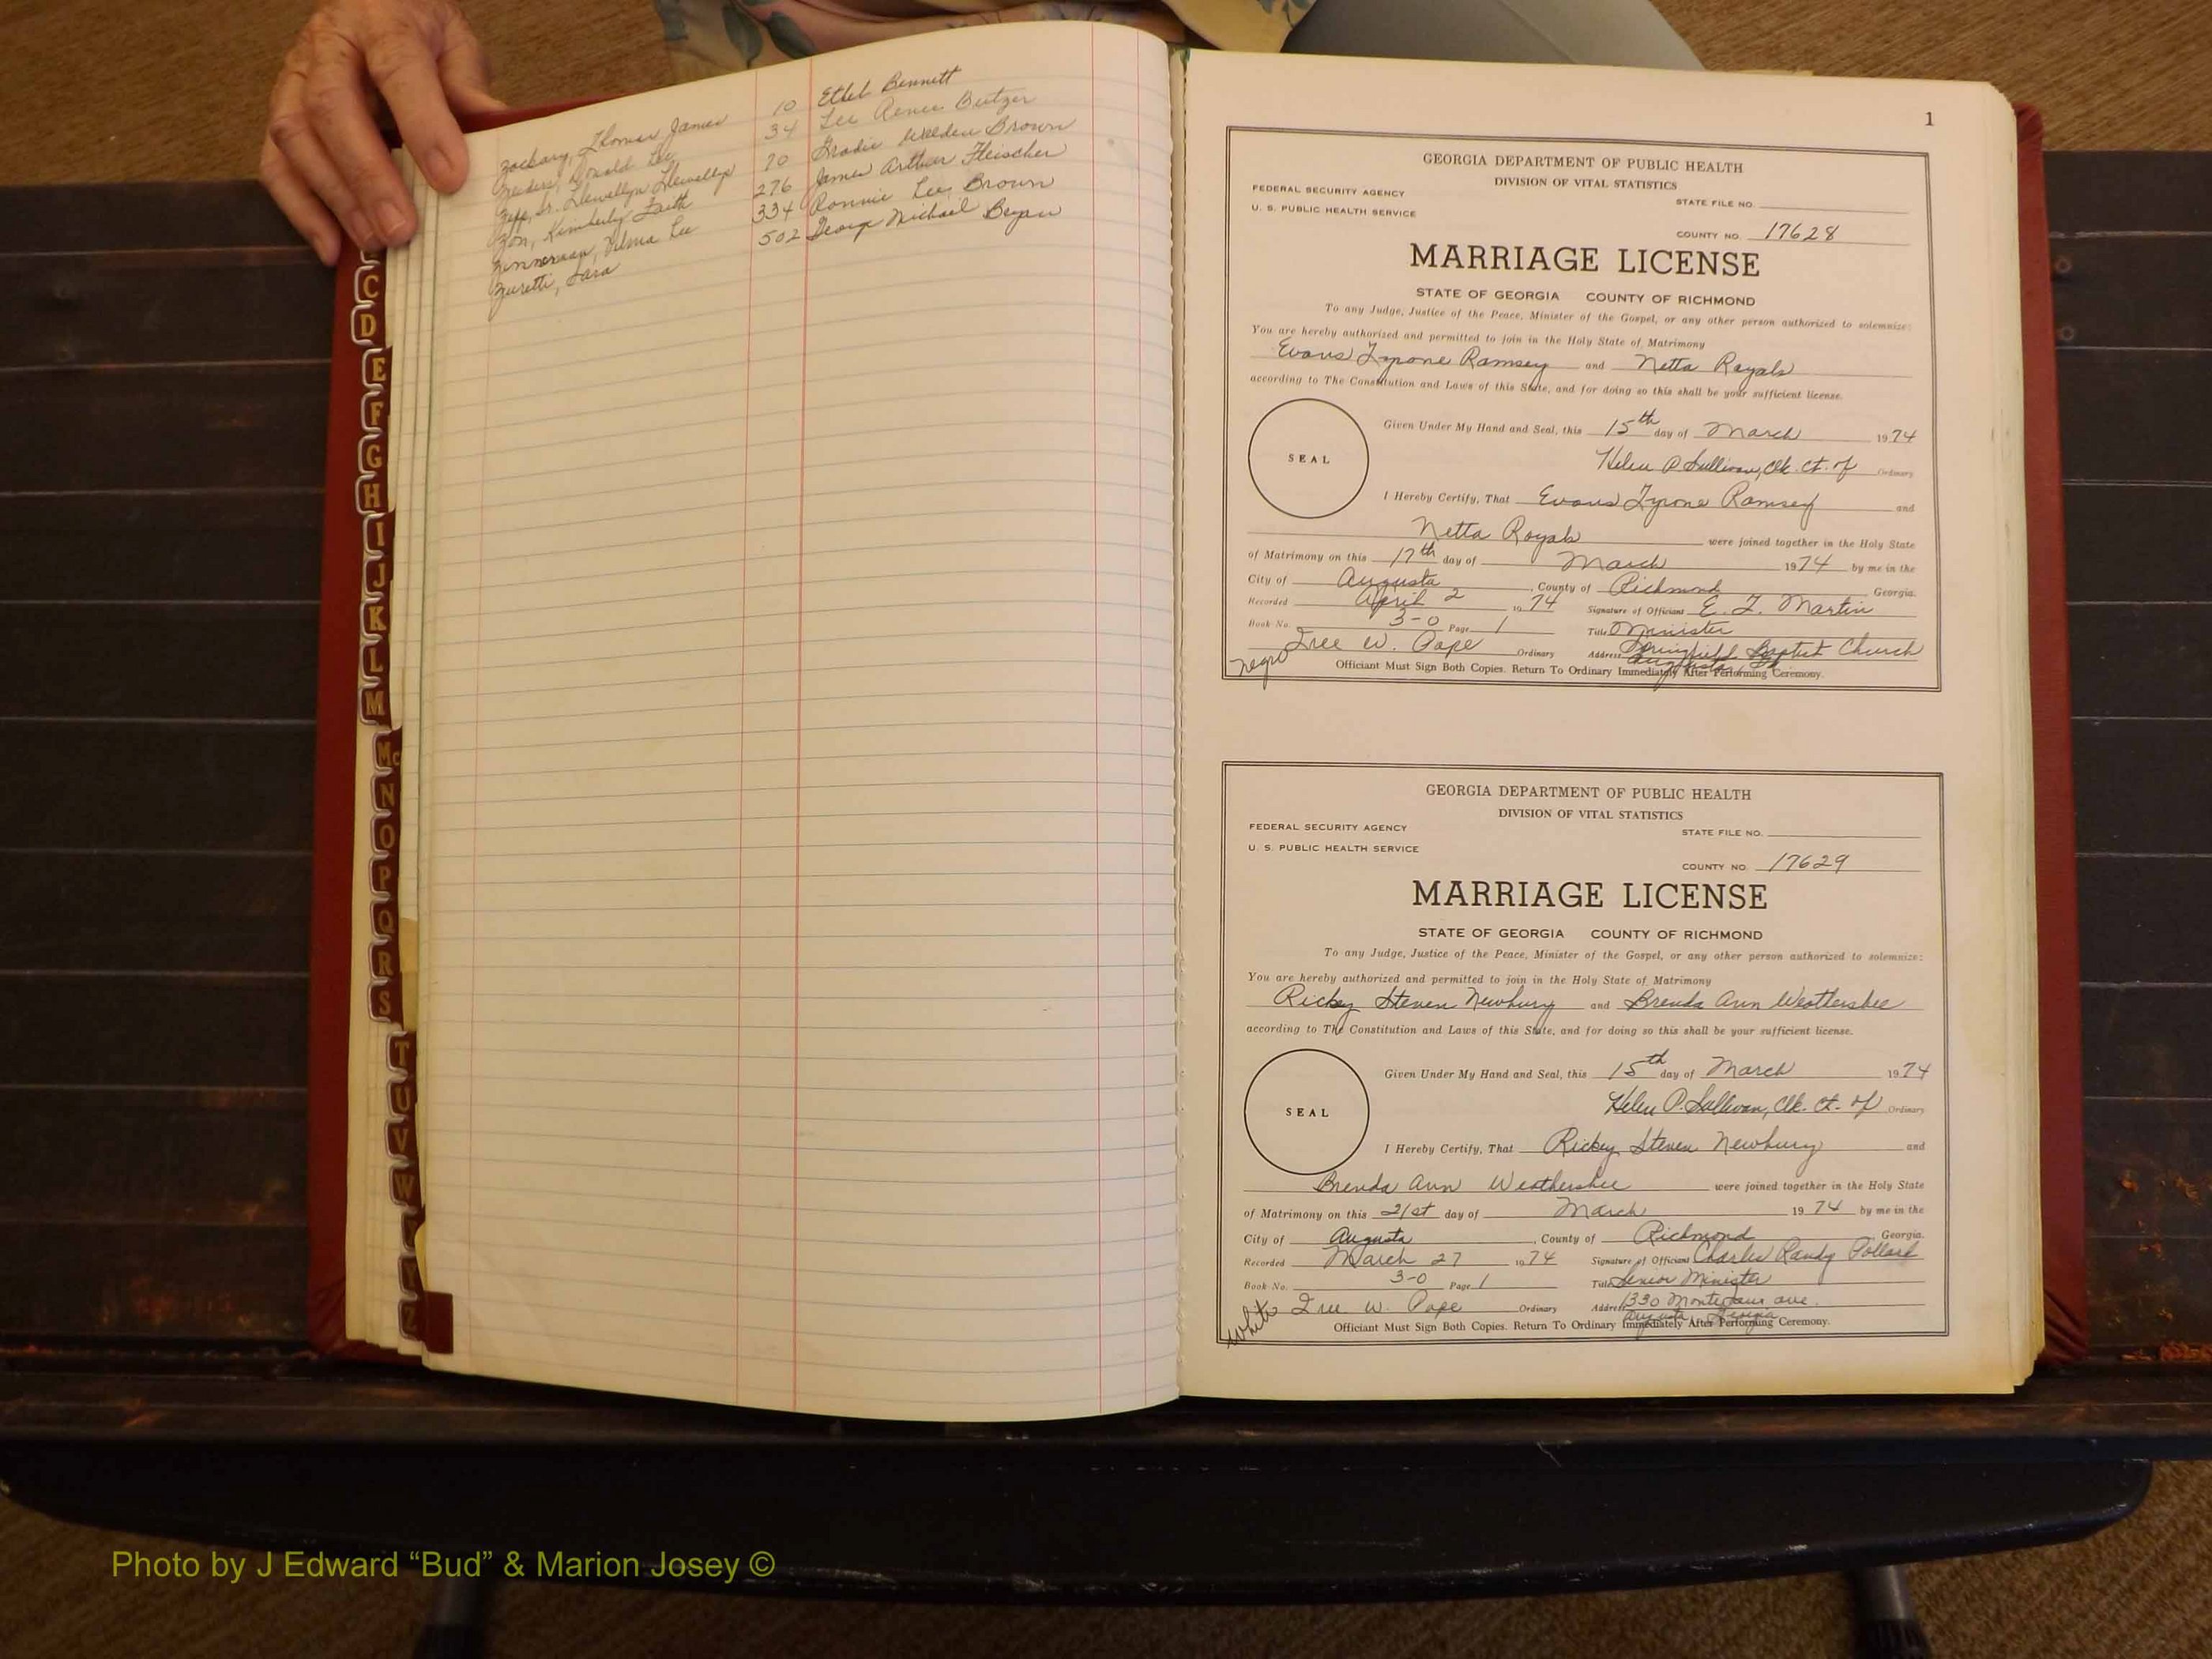 Zachary, Thomas James 10 Ethel Bennett
Donald Lee 34 Lee Renee Butzer
Zepp, Sr. Llewellyn Llewellyn 70 Gradie Brown
Zon, Kimberly Faith 276 James Arthur Fleischer
Zimmerman, Velma Lee 334 Ronnie Lee Brown
Zuretti, Sara 502 George Michael Bryan
C
D
E
F
G
H
I
J
K
L
M
Mc
N
O
P
Q
R
S
T
U
V
W
Y
Z
1
GEORGIA DEPARTMENT OF PUBLIC HEALTH
DIVISION OF VITAL STATISTICS
FEDERAL SECURITY AGENCY STATE FILE NO.
U. S. PUBLIC HEALTH SERVICE
COUNTY NO. 17628
MARRIAGE LICENSE
STATE OF GEORGIA COUNTY OF RICHMOND
To any Judge, Justice of the Peace, Minister of the Gospel, or any other person authorized to solemnize:
You are hereby authorized and permitted to join in the Holy State of Matrimony
Evans Tyrone Ramsey and Netta Royals
according to The Constitution and Laws of this State, and for doing so this shall be your sufficient license.
Given Under My Hand and Seal, this 15th day of March 1974
SEAL
Helen P. Sullivan, Clk. Ct. of Ordinary
I Hereby Certify, That Evans Tyrone Ramsey and
Netta Royals were joined together in the Holy State
of Matrimony on this 17th day of March 1974 by me in the
City of Augusta, County of Richmond Georgia.
Recorded April 2 1974 Signature of Officiant E. T. Martin
Book No. 3-0 Page 1 Title Minister
Tree W. Pope Ordinary Address Springfield Baptist Church
Augusta, Ga
negro
Officiant Must Sign Both Copies. Return To Ordinary Immediately After Performing Ceremony.
GEORGIA DEPARTMENT OF PUBLIC HEALTH
DIVISION OF VITAL STATISTICS
FEDERAL SECURITY AGENCY STATE FILE NO.
U. S. PUBLIC HEALTH SERVICE
COUNTY NO. 17629
MARRIAGE LICENSE
STATE OF GEORGIA COUNTY OF RICHMOND
To any Judge, Justice of the Peace, Minister of the Gospel, or any other person authorized to solemnize:
You are hereby authorized and permitted to join in the Holy State of Matrimony
Rickey Steven Newbury and Brenda Ann Weathersbee
according to The Constitution and Laws of this State, and for doing so this shall be your sufficient license.
Given Under My Hand and Seal, this 15th day of March 1974
SEAL
Helen P. Sullivan, Clk. Ct. of Ordinary
I Hereby Certify, That Rickey Steven Newbury and
Brenda Ann Weathersbee were joined together in the Holy State
of Matrimony on this 21st day of March 1974 by me in the
City of Augusta, County of Richmond Georgia.
Recorded March 27 1974 Signature of Officiant Charles Randy Pollard
Book No. 3-0 Page 1 Title Senior Minister
Tree W. Pope Ordinary Address 1330 ave.
Augusta, Georgia
white
Officiant Must Sign Both Copies. Return To Ordinary Immediately After Performing Ceremony.
Photo by J Edward “Bud” & Marion Josey ©